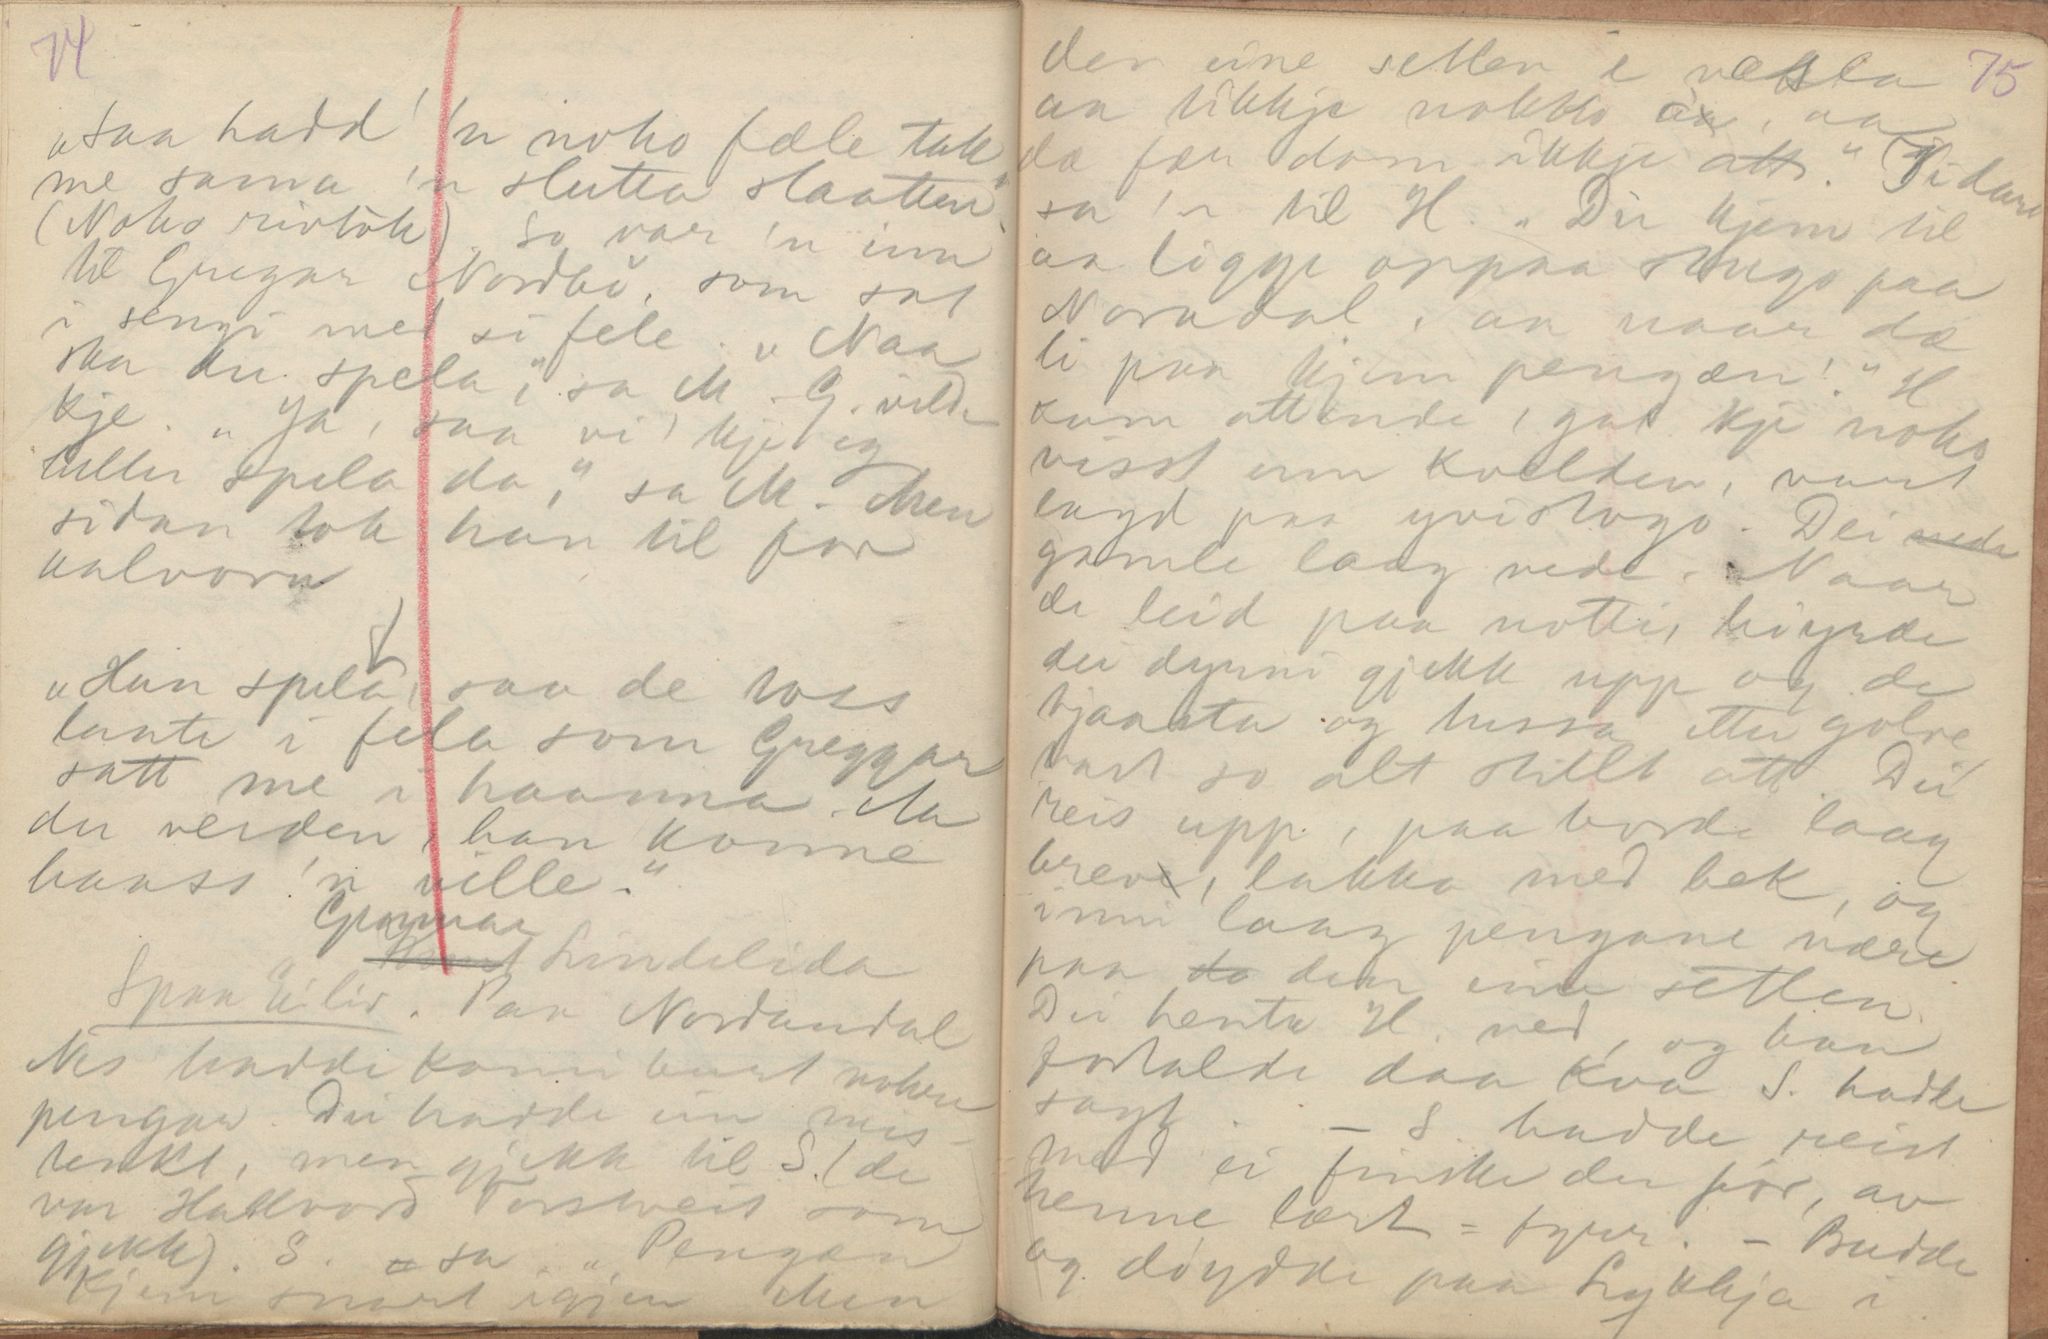 74
„Saa hadd 'n noko fæle tak
me sama 'n slutta slaatten"
(Noko rivtök). So var 'n inn
til Gregar Nordbö, som sat
i sengi med si fele. „Naa
ska du spela", sa M. G. vilde
kje. „Ja, saa vi' kje eg
heller spela da," sa M. Men
sidan tok han til for
aalvora
„Han spela, saa de toss
laate i fela som Greggar
satt me i haanna. Aa
du verden, han konne
haass 'n ville."
Gunnar
Lindelida
Spaa Eiliv. Paa Nordandal
Nes hadde komi burt nokre
pengar. Dei hadde ein mis-
tenkt, men gjekk til S. (de
var Hallvord Torsteveit som
gjekk). S. sa „Pengan
kjem snart igjen Men
75
den eine setlen i væska
aa likkje nokko av, aa
da fær dom ikkje att." Sidan
sa 'n til H. „Du kjem til
aa liggje oppaa stugo paa
Noradal, aa naar dæ
li paa kjem pengæn!" H
kom attende, gat kje noko
visst um kvelden, vart
lagd paa yvistogo. Dei
gamle laag nede. Naar
de leid paa notti, höyrde
dei dynni gjekk upp og de
tjaasta og tussa etter golve
vart so alt stillt att. Dei
reis upp, paa borde laag
breve, lakka med bek, og
inni laag pengane nære
paa den eine setlen.
Dei henta H. ned, og han
fortalde daa kva S. hadde
sagt. - S. hadde reist
med ei finske der för, av
henne lært - fyrr. - Budde
og döydde paa Lykkja i